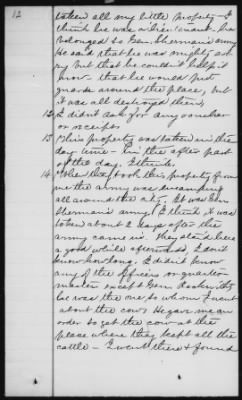 12
taken all my little property - I
think he was a lieutenant. he
belonged to Gen. Sherman's army
He said that he was mighty sor
ry but that he couldn't help it
now - that he would put
guards around the place, but
it was all destroyed then,
I didn't ask for any voucher
or receipt
15 This property was taken in the
day time - in the after part
of the day. I think.
14 When they took this property from
me the army was encamping
all around the city. It was Gen
Sherman's army I think it was
taken about 2 days after the
army came in. They stayed here
a good while afterward, I don't
know how long. I didn't know
any of the Officers or quarter
master except Gen
he was the one to whom I went
about the cow; He gave me an
order to get the cow at the
place where they kept all the
cattle - I went there & found